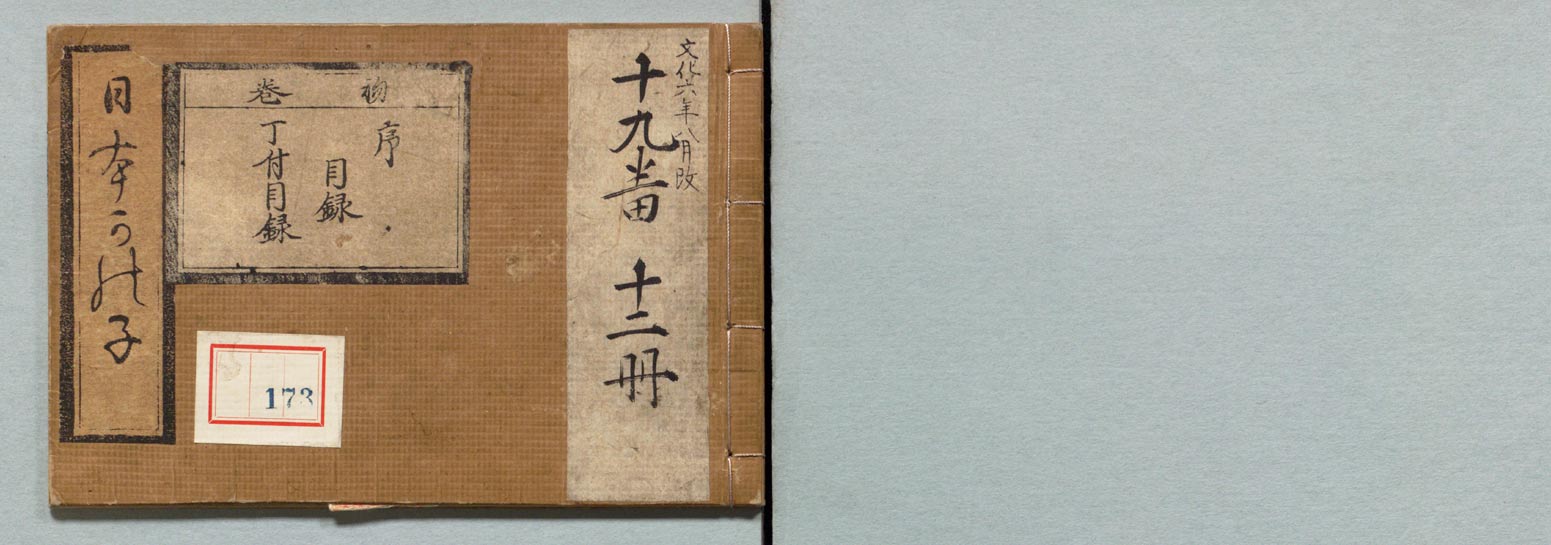 文化六年八月改
十九番 十二冊
初巻
序
目録
丁付目録
日本かの子
173